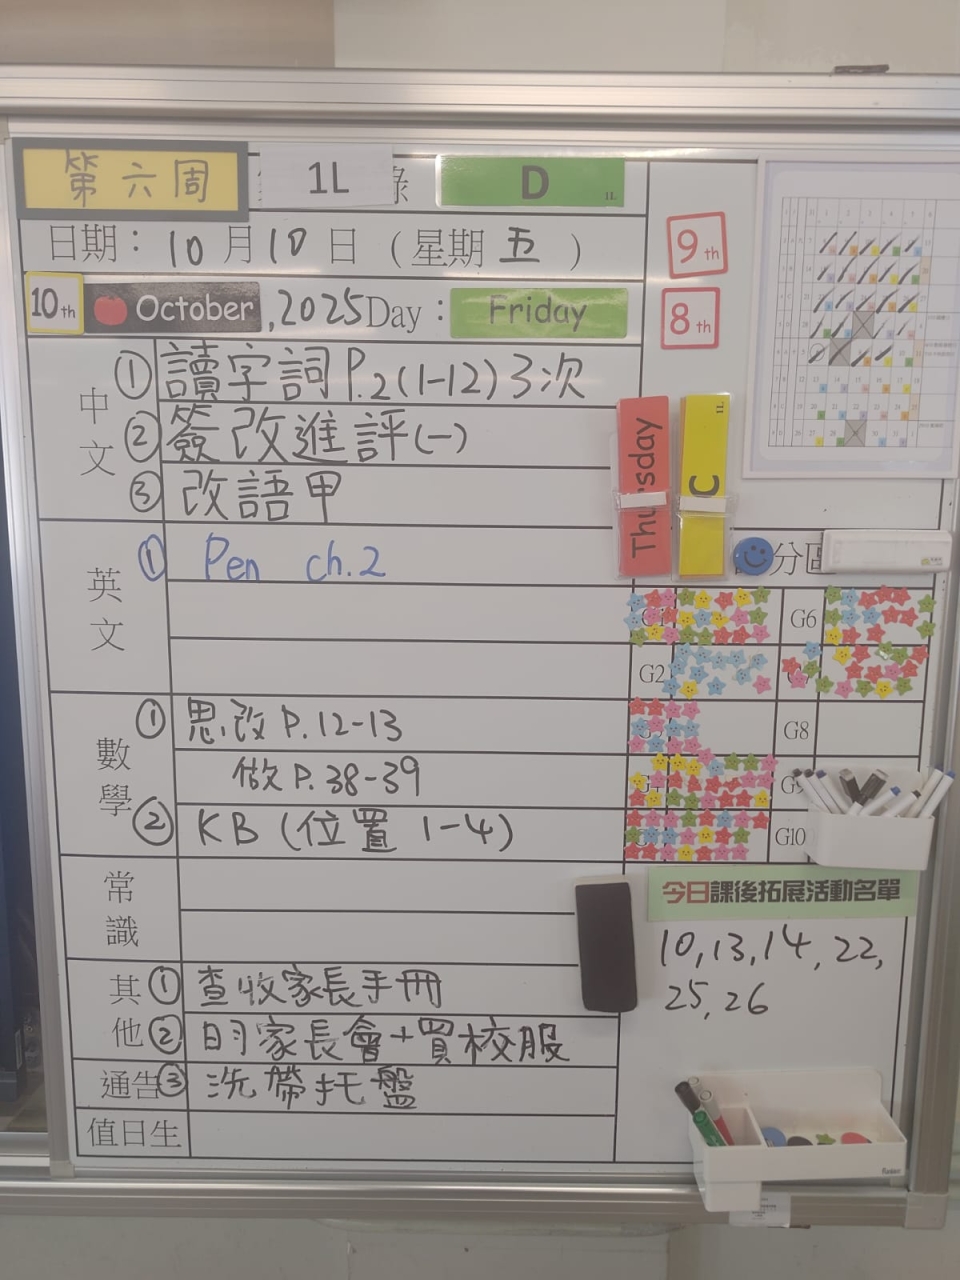 第六周 1L 錄 D 1L
日期：10月10日（星期五）
9th
10th October, 2025 Day： Friday
8th
中文
① 讀字詞P.2(1-12)3次
② 簽改進評(一)
③ 改語甲
Thursday
C 1L
英文
① Pen ch.2
分區
G6
G2
G8
G10
數學
① 思改P.12-13
做P.38-39
② KB(位置 1-4)
常識
今日課後拓展活動名單
10,13,14,22,
25,26
其他
① 查收家長手冊
② 明家長會+買校服
通告 ③ 洗帶托盤
值日生